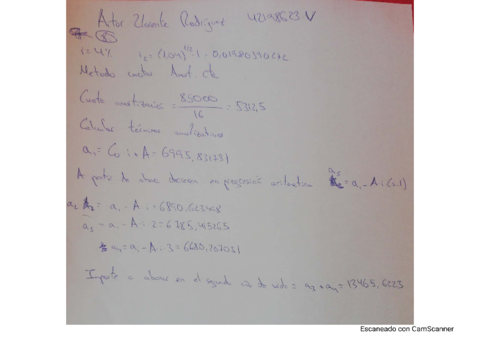 Artor Llorente Rodríguez 42198623 V
i=4% i₂=(1,04)^1/2-1=0,0198039027
Metodo cuotas Amort. cte
Cuota amortización = 85000/16 = 5312,5
Calcular términos amortizativos
a₁ = C₀·i+A = 6995,831731
A partir de ahora decrecen en progresión aritmética a₂ = a₁-A·i·(s-1)
a₂ = a₁-A·i = 6890,623498
a₃ = a₁-A·i·2 = 6785,415265
a₄ = a₁-A·i·3 = 6680,207031
Importe a abonar en el segundo año de vida = a₃+a₄ = 13465,6223
Escaneado con CamScanner